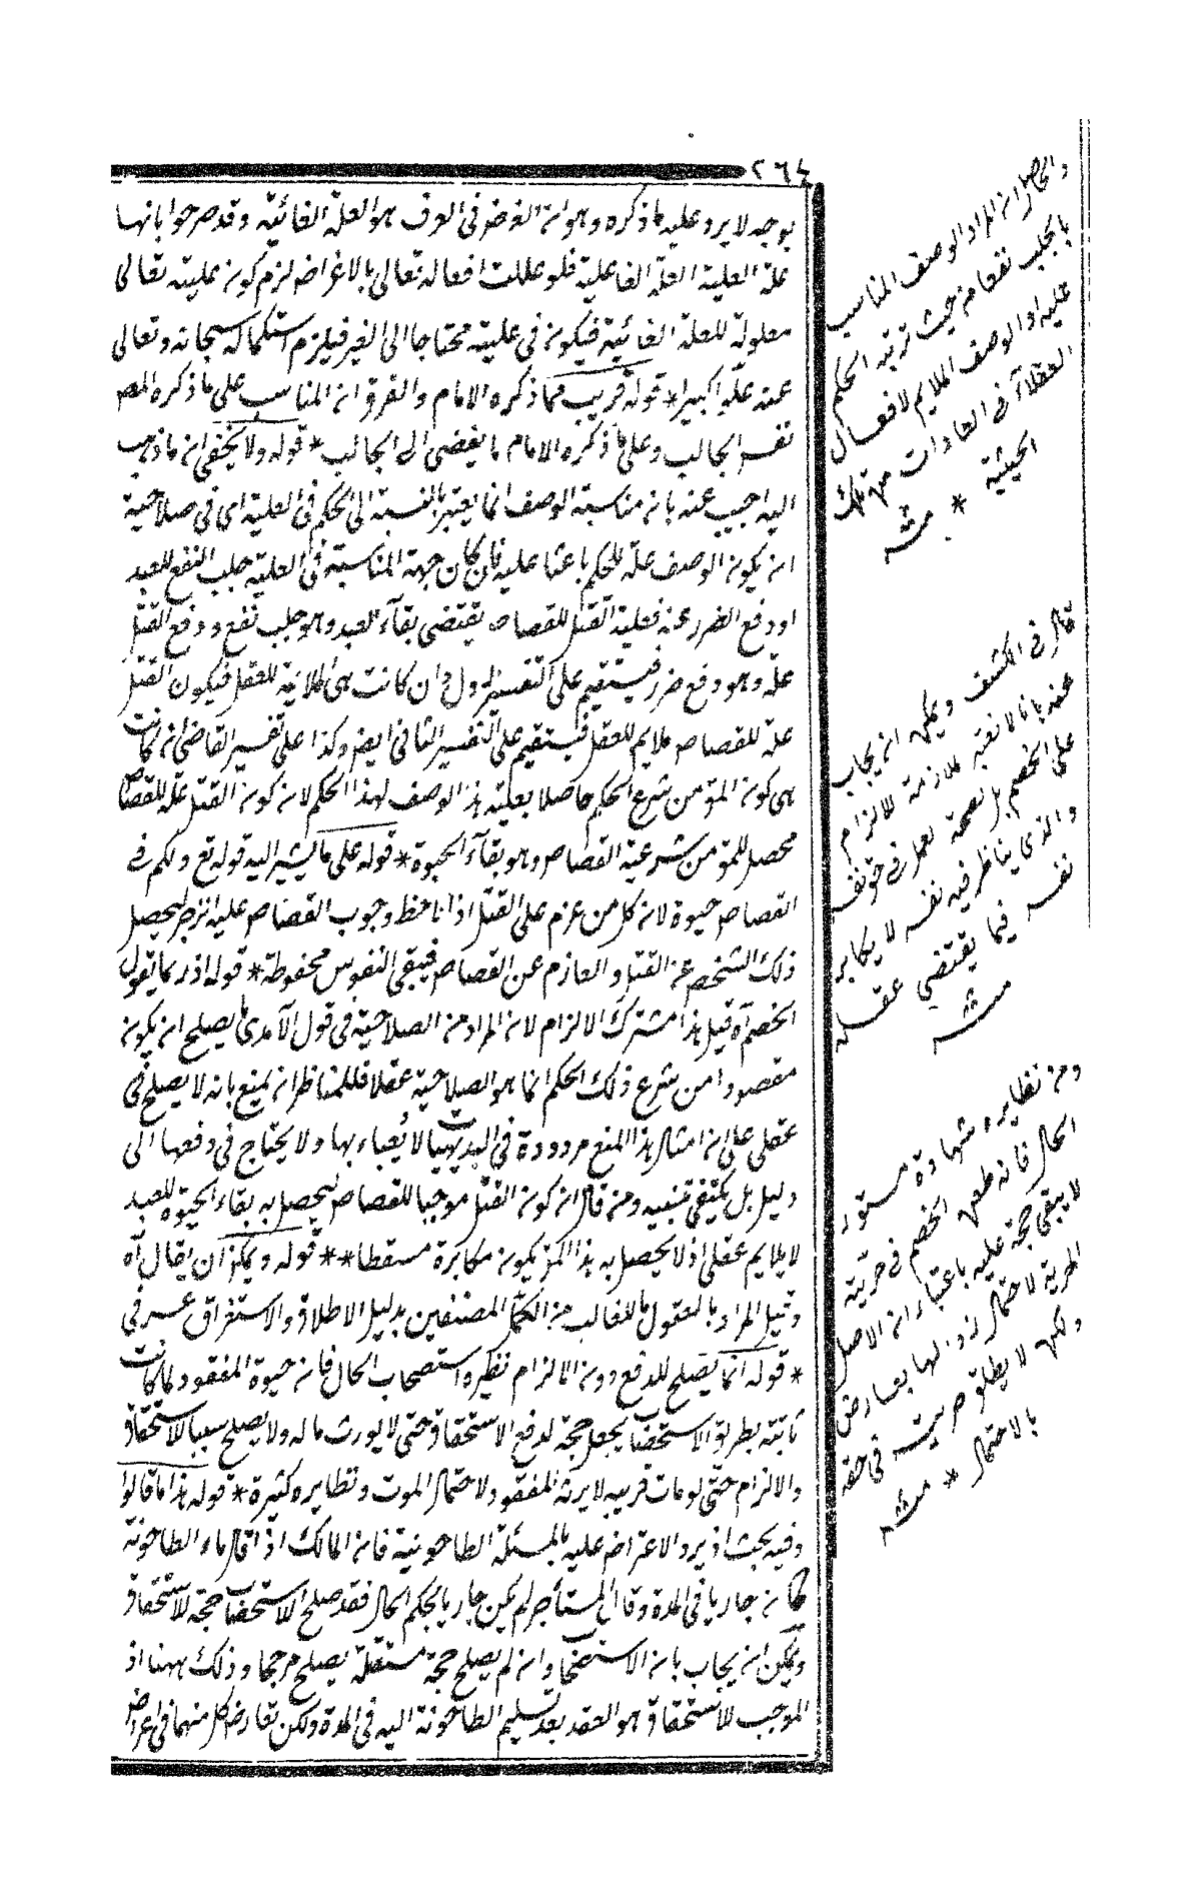 ٢٦٤
بوجه لا يرد عليه ما ذكره وهو ان الغرض فى العرف هو العلة الغائية وقد صرحوا بانها
علة العلية العلة الفاعلية فلو عللت افعاله تعالى بالاغراض لزم كون عليته تعالى
معلولة للعلة الغائية فيكون فى عليته محتاجا الى الغير فيلزم استكماله سبحانه وتعالى
عنه علوا كبيرا * قوله قريب مما ذكره الامام والفرق ان المناسب على ما ذكره المص
نفس الجالب وعلى ما ذكره الامام ما يفضى الى الجالب * قوله ولا يخفى ان ما ذهب
اليه اجيب عنه بان مناسبة الوصف انما يعتبر بالنسبة الى الحكم فى العلية اى فى صلاحية
ان يكون الوصف علة للحكم باعثا عليه فان كان جهة المناسبة فى العلية جلب النفع للعبد
او دفع الضرر عنه فعلية القتل للقصاص يقتضى بقاء العبد وهو جلب نفع ودفع القتل
عنه وهو دفع ضرر فيستقيم على التفسير الاول وان كانت هى الملايمة للعقل فيكون القتل
علة للقصاص ملايم للعقل فيستقيم على التفسير الثانى ايض وكذا على تفسير القاضى ان كانت
هى كون المؤمن شرع الحكم حاصلا بعلية هذا الوصف لهذا الحكم لان كون القتل علة للقصاص
محصل للمؤمن شرعية القصاص وهو بقاء الحيوة * قوله على ما يشير اليه قوله تع ولكم فى
القصاص حيوة لان كل من عزم على القتل اذا لاحظ وجوب القصاص عليه انزجر ليحصل
ذلك الشخص عن القتل والعازم عن القصاص فيبقى النفوس محفوظة * قوله اذ ربما يقول
الخصم آه قيل هذا مشترك الالزام لان المراد من الصلاحية فى قول الآمدى ما يصلح ان يكون
مقصودا من شرع ذلك الحكم انما هو الصلاحية عقلا فللمناظر ان يمنع بانه لا يصلح فى
عقلى على ان امثال هذا المنع مردودة فى البديهيات لا يعباء بها ولا يحتاج فى دفعها الى
دليل بل يكتفى بتنبيه ومن قال ان كون القتل موجبا للقصاص ليحصل به بقاء الحيوة للعبد
لا يلايم عقلى اذ لا يحصل به هذا المز يكون مكابرة مسقطا ** قوله ويمكن ان يقال آه
وقيل المراد بالعقول ما للغالب من الكمل المصنفين بدليل الاطلاق والاستغراق عرفى
* قوله انما يصلح للدفع دون الالزام نظيره استصحاب الحال فان حيوة المفقود لما كانت
ثابتة بطريق الاستصحاب يجعل حجة لدفع الاستحقاق حتى لا يورث ماله ولا يصلح سببا للاستحقاق
والالزام حتى لو مات قريبه لا يرثه المفقود لاحتمال الموت ونظايره كثيرة * قوله هذا ما قالوا
وفيه بحث اذ يرد الاعتراض عليه بالمسئلة الطاحونية فان المالك اذا قال ماء الطاحونة
كان جاريا فى المدة وقال المستأجر لم يكن جاريا يحكم الحال فقد صلح الاستصحاب حجة للاستحقاق
ويمكن ان يجاب بان الاستصحاب وان لم يصلح حجة مستقلة يصلح مرجحا وذلك ههنا اذ
الموجب للاستحقاق هو العقد بعد تسليم الطاحونة اليه فى المدة ولكن تعارض كل منهما فى اعراض
والحاصل ان المراد الوصف المناسب
بالجلب نفعا من حيث ترتبه الحكم
عليه او الوصف الملايم لافعال
العقلاء فى العادات من تلك
الحيثية * منه
قال فى الكشف ويمكن ان يجاب
عنه بانا لا نعتبر ملازمة للالزام
على الخصم بل لصحة العمل فى حق نفسه
والذى يناظر فيه نفسه لا يكابر
نفسه فيما يقتضى عقله
منه
ومن نظايره شهادة مستور
الحال فانه طعن الخصم فى حريته
لا يبقى حجة عليه باعتبار ان الاصل
الحرية لاحتمال زوالها بعارض
ولكن لا يطلق حريته فى حقه
بالاحتمال * منه